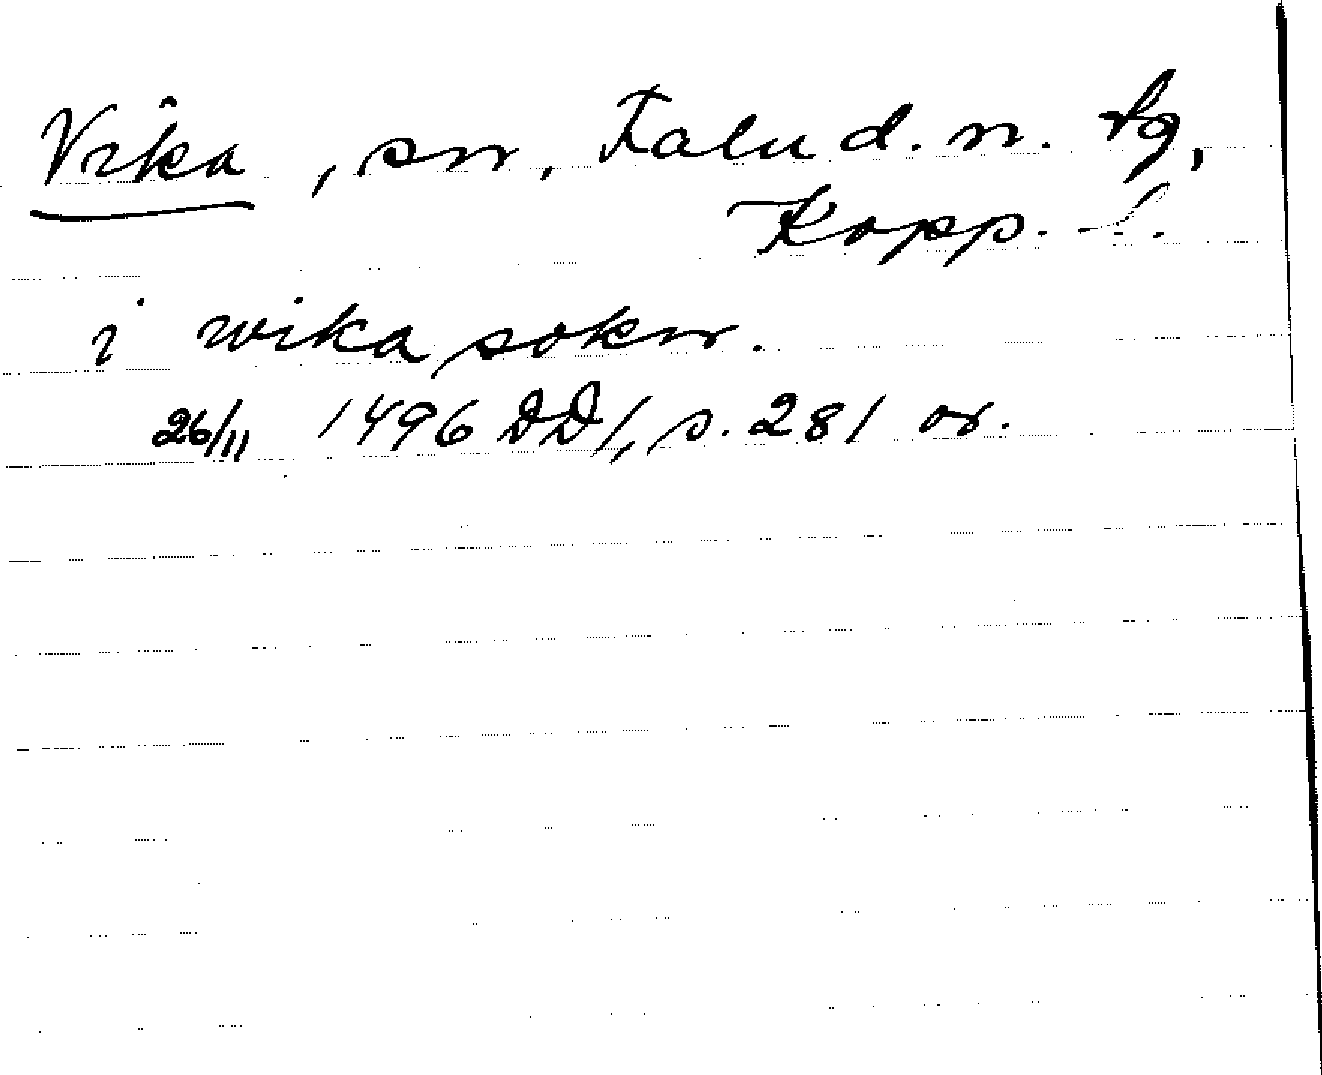 Vika, sn, Falu d. n. tg,
Kopp. l.
i wika sokn.
26/11 1496 DD 1, s. 281 or.